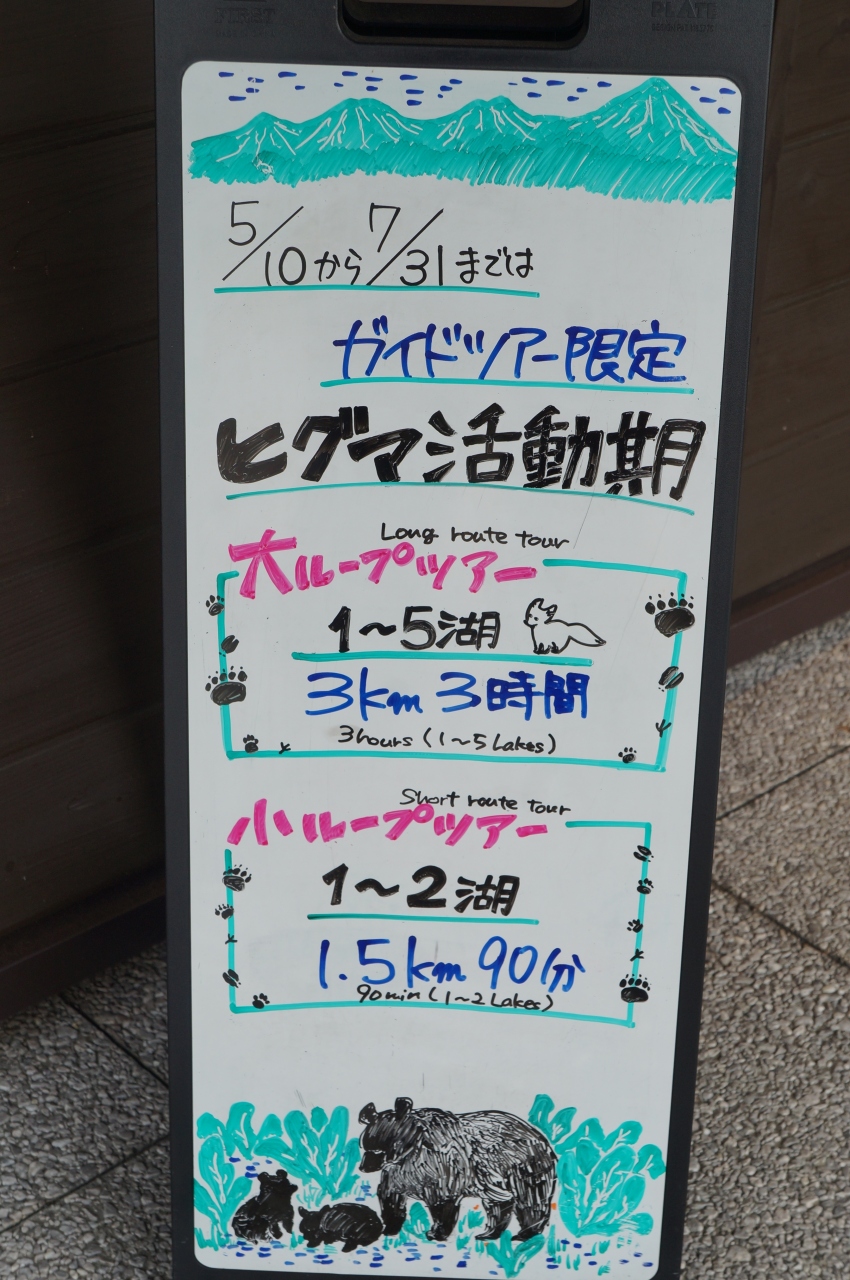 5/10から7/31までは
ガイドツアー限定
ヒグマ活動期
Long route tour
大ループツアー
1~5湖
3km 3時間
3hours (1~5 Lakes)
Short route tour
小ループツアー
1~2湖
1.5km 90分
90min (1~2 Lakes)